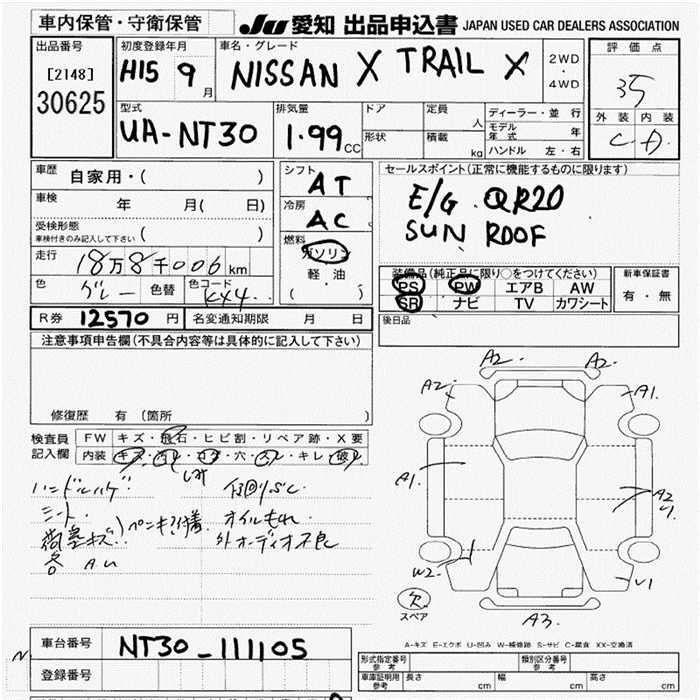 車内保管・守衛保管
JU 愛知 出品申込書 JAPAN USED CAR DEALERS ASSOCIATION
出品番号
[2148]
30625
初度登録年月
H15 9 月
車名・グレード
NISSAN X TRAIL X
2WD
・
4WD
評価点
35
外装 内装
C D
型式
UA-NT30
排気量
1.99 CC
ドア
形状
定員 人
積載 kg
ディーラー・並行
モデル年式 年
ハンドル 左・右
車歴 自家用・( )
車検 年 月( 日)
受検形態
車検付きのみ記入して下さい ( )
走行 18万8千006km
色 グレー 色替 色コード KX4
シフト AT
冷房 AC
燃料 ガソリン
軽油
( )
セールスポイント(正常に機能するものに限ります)
E/G QR20
SUN ROOF
装備品(純正品に限り○をつけてください)
PS PW エアB AW
SR ナビ TV カワシート
新車保証書
有・無
R券 12570 円 名変通知期限 月 日
後日品
注意事項申告欄(不具合内容等は具体的に記入して下さい)
修復歴 有(箇所 )
検査員 FW キズ・飛石・ヒビ割・リペア跡・X要
記入欄 内装 キズ・汚レ・コゲ・穴・スレ・キレ・破レ
シミ
ハンドルハゲ
シート
オイルもれ
外オーディオ不良
各 AU
A2 A2
A2 A1
A1 A2
W2 U1
A3
欠
スペア
A-キズ E-エクボ U-凹み W-補修跡 S-サビ C-腐食 XX-交換済
車台番号 NT30-111105
登録番号
形式指定番号 参考
類別区分番号 参考
車庫証明用 参考 長さ cm 幅 cm 高さ cm